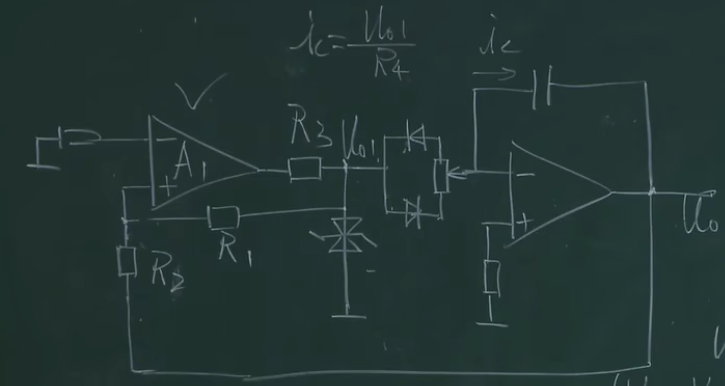 ic = Uo1 / R4
ic
R3 Uo1
A1
R1
R2
Uo